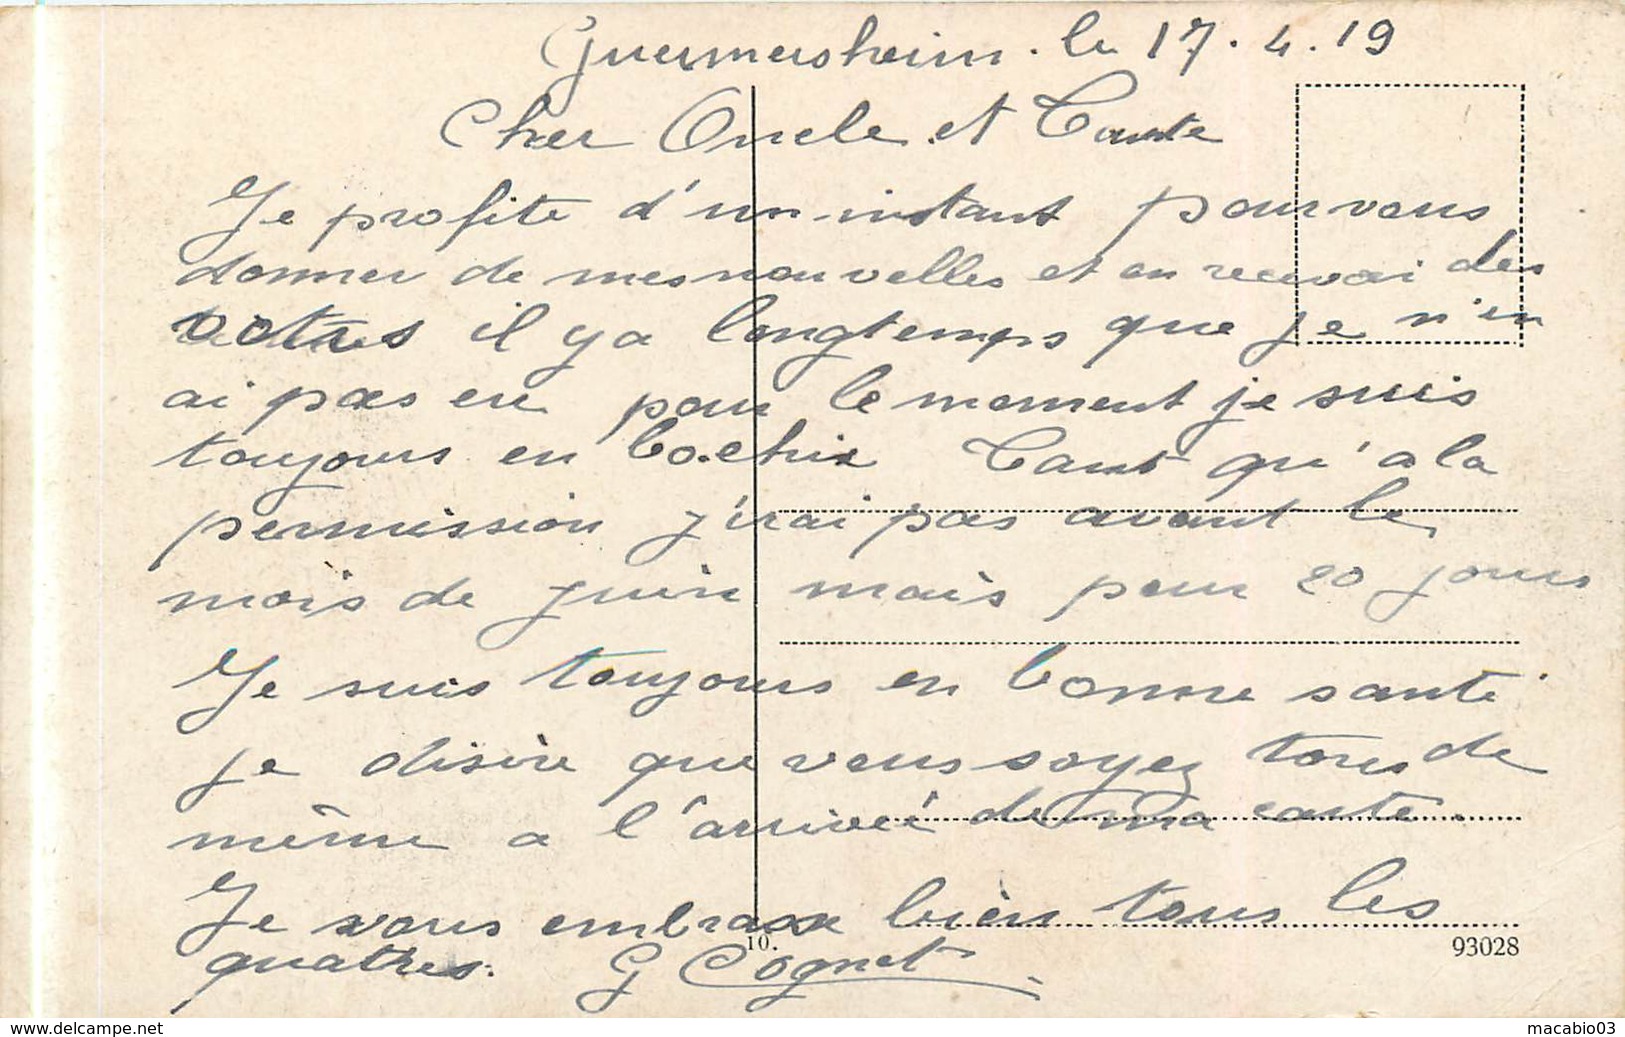 Guermersheim. le 17.4.19
Cher Oncle et Tante
Je profite d'un instant pour vous
donner de mes nouvelles et en recevoi des
votres il y a longtemps que je n'en
ai pas eu pour le moment je suis
toujours en Bochie Tant qu'a la
permission j'irai pas avant le
mois de juin mais pour 20 jours
Je suis toujours en bonne santé
je désire que vous soyez tous de
même a l'arrivée de ma carte.
Je vous embrasse bien tous les
quatres. G Cognet
10.
93028
www.delcampe.net
macabio03